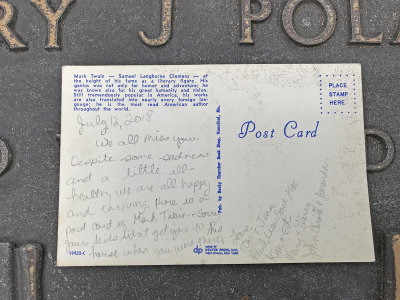 RY J POLA
Mark Twain – Samuel Langhorne Clemens – at
the height of his fame as a literary figure. His
genius was not only for humor and adventure; he
was known also for his great humanity and vision.
Still tremendously popular in America, his works
are also translated into nearly every foreign lan-
guage; he is the most renowned American author
throughout the world.
PLACE
STAMP
HERE
July 12, 2018
We all miss you.
Despite some sadness
and a little ill-
health, we are all happy
and thriving. Here is a
post card of Mark Twain - Sorry
your kids didn't get you to his
house when you were
Post Card
Pub. by Becky Thatcher Book Shop, Hannibal, Mo.
Love
19933-C
MADE BY
DEXTER PRESS, INC.
WEST NYACK, NEW YORK